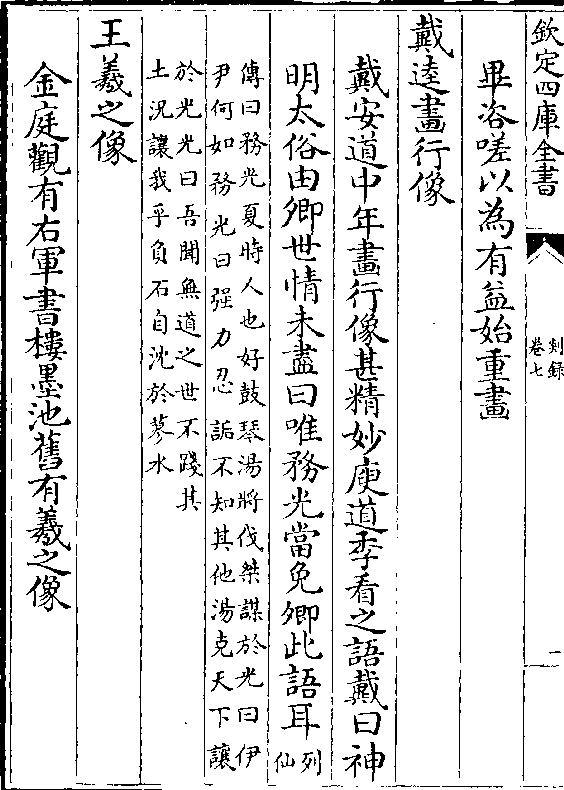 欽定四庫全書
剡錄
卷七
二
畢咨嗟以為有益始重畫
戴逵畫行像
戴安道中年畫行像甚精妙庾道季看之語戴曰神
明太俗由卿世情未盡曰唯務光當免卿此語耳
列
仙
傳曰務光夏時人也好鼓琴湯將伐桀謀於光曰伊
尹何如務光曰强力忍詬不知其他湯克天下讓
於光光曰吾聞無道之世不踐其
土況讓我乎負石自沈於蓼水
王羲之像
金庭觀有右軍書樓墨池舊有羲之像